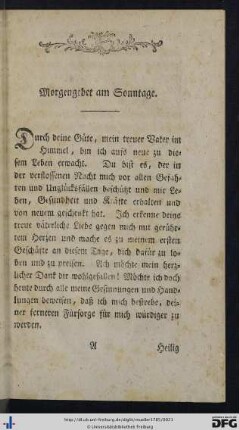 Morgengebet am Sonntage.
Durch deine Güte, mein treuer Vater im
Himmel, bin ich aufs neue zu die-
sem Leben erwacht. Du bist es, der in
der verflossenen Nacht mich vor allen Gefah-
ren und Unglücksfällen beschützt und mir Le-
ben, Gesundheit und Kräfte erhalten und
von neuem geschenkt hat. Ich erkenne deine
treue väterliche Liebe gegen mich mit gerühr-
tem Herzen und mache es zu meinem ersten
Geschäfte an diesem Tage, dich dafür zu lo-
ben und zu preisen. Ach möchte mein herz-
licher Dank dir wohlgefallen! Möchte ich doch
heute durch alle meine Gesinnungen und Hand-
lungen beweisen, daß ich mich bestrebe, dei-
ner ferneren Fürsorge für mich würdiger zu
werden.
A Heilig
© Universitätsbibliothek Freiburg
Gefördert durch die
DFG